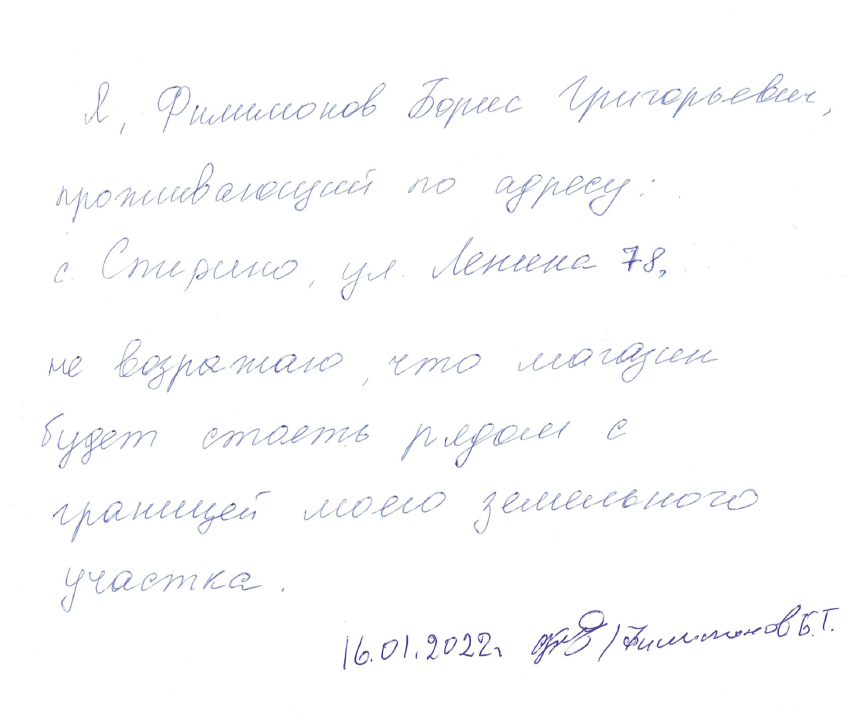 Я, Филимонов Борис Григорьевич,
проживающий по адресу:
с. Спирино, ул. Ленина 78,
не возражаю, что магазин
будет стоять рядом с
границей моего земельного
участка.
16.01.2022г. /Филимонов Б.Г.